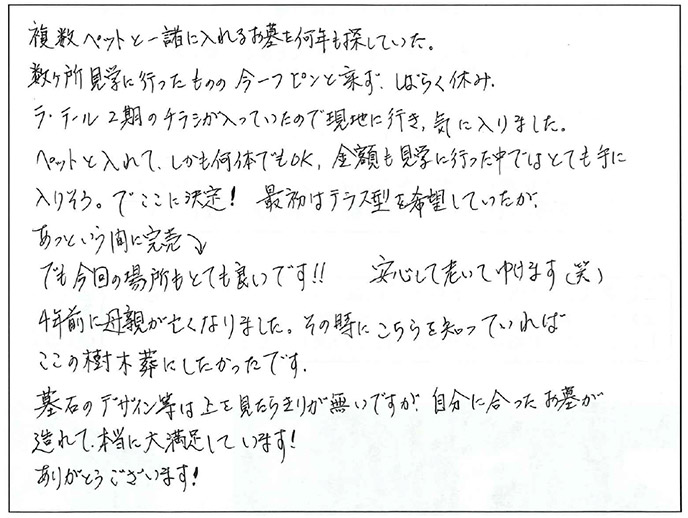 複数ペットと一諸に入れるお墓を何年も探していた。
数ヶ所見学に行ったものの今一つピンと来ず、しばらく休み、
ラ・テール2期のチラシが入っていたので現地に行き、気に入りました。
ペットと入れて、しかも何体でもOK、金額も見学に行った中ではとても手に
入りそう。でここに決定！ 最初はテラス型を希望していたが、
あっという間に完売↘
でも今回の場所もとても良いです!! 安心して老いてゆけます(笑)
4年前に母親が亡くなりました。その時にこちらを知っていれば
ここの樹木葬にしたかったです。
墓石のデザイン等は上を見たらきりが無いですが、自分に合ったお墓が
造れて、本当に大満足しています！
ありがとうございます！